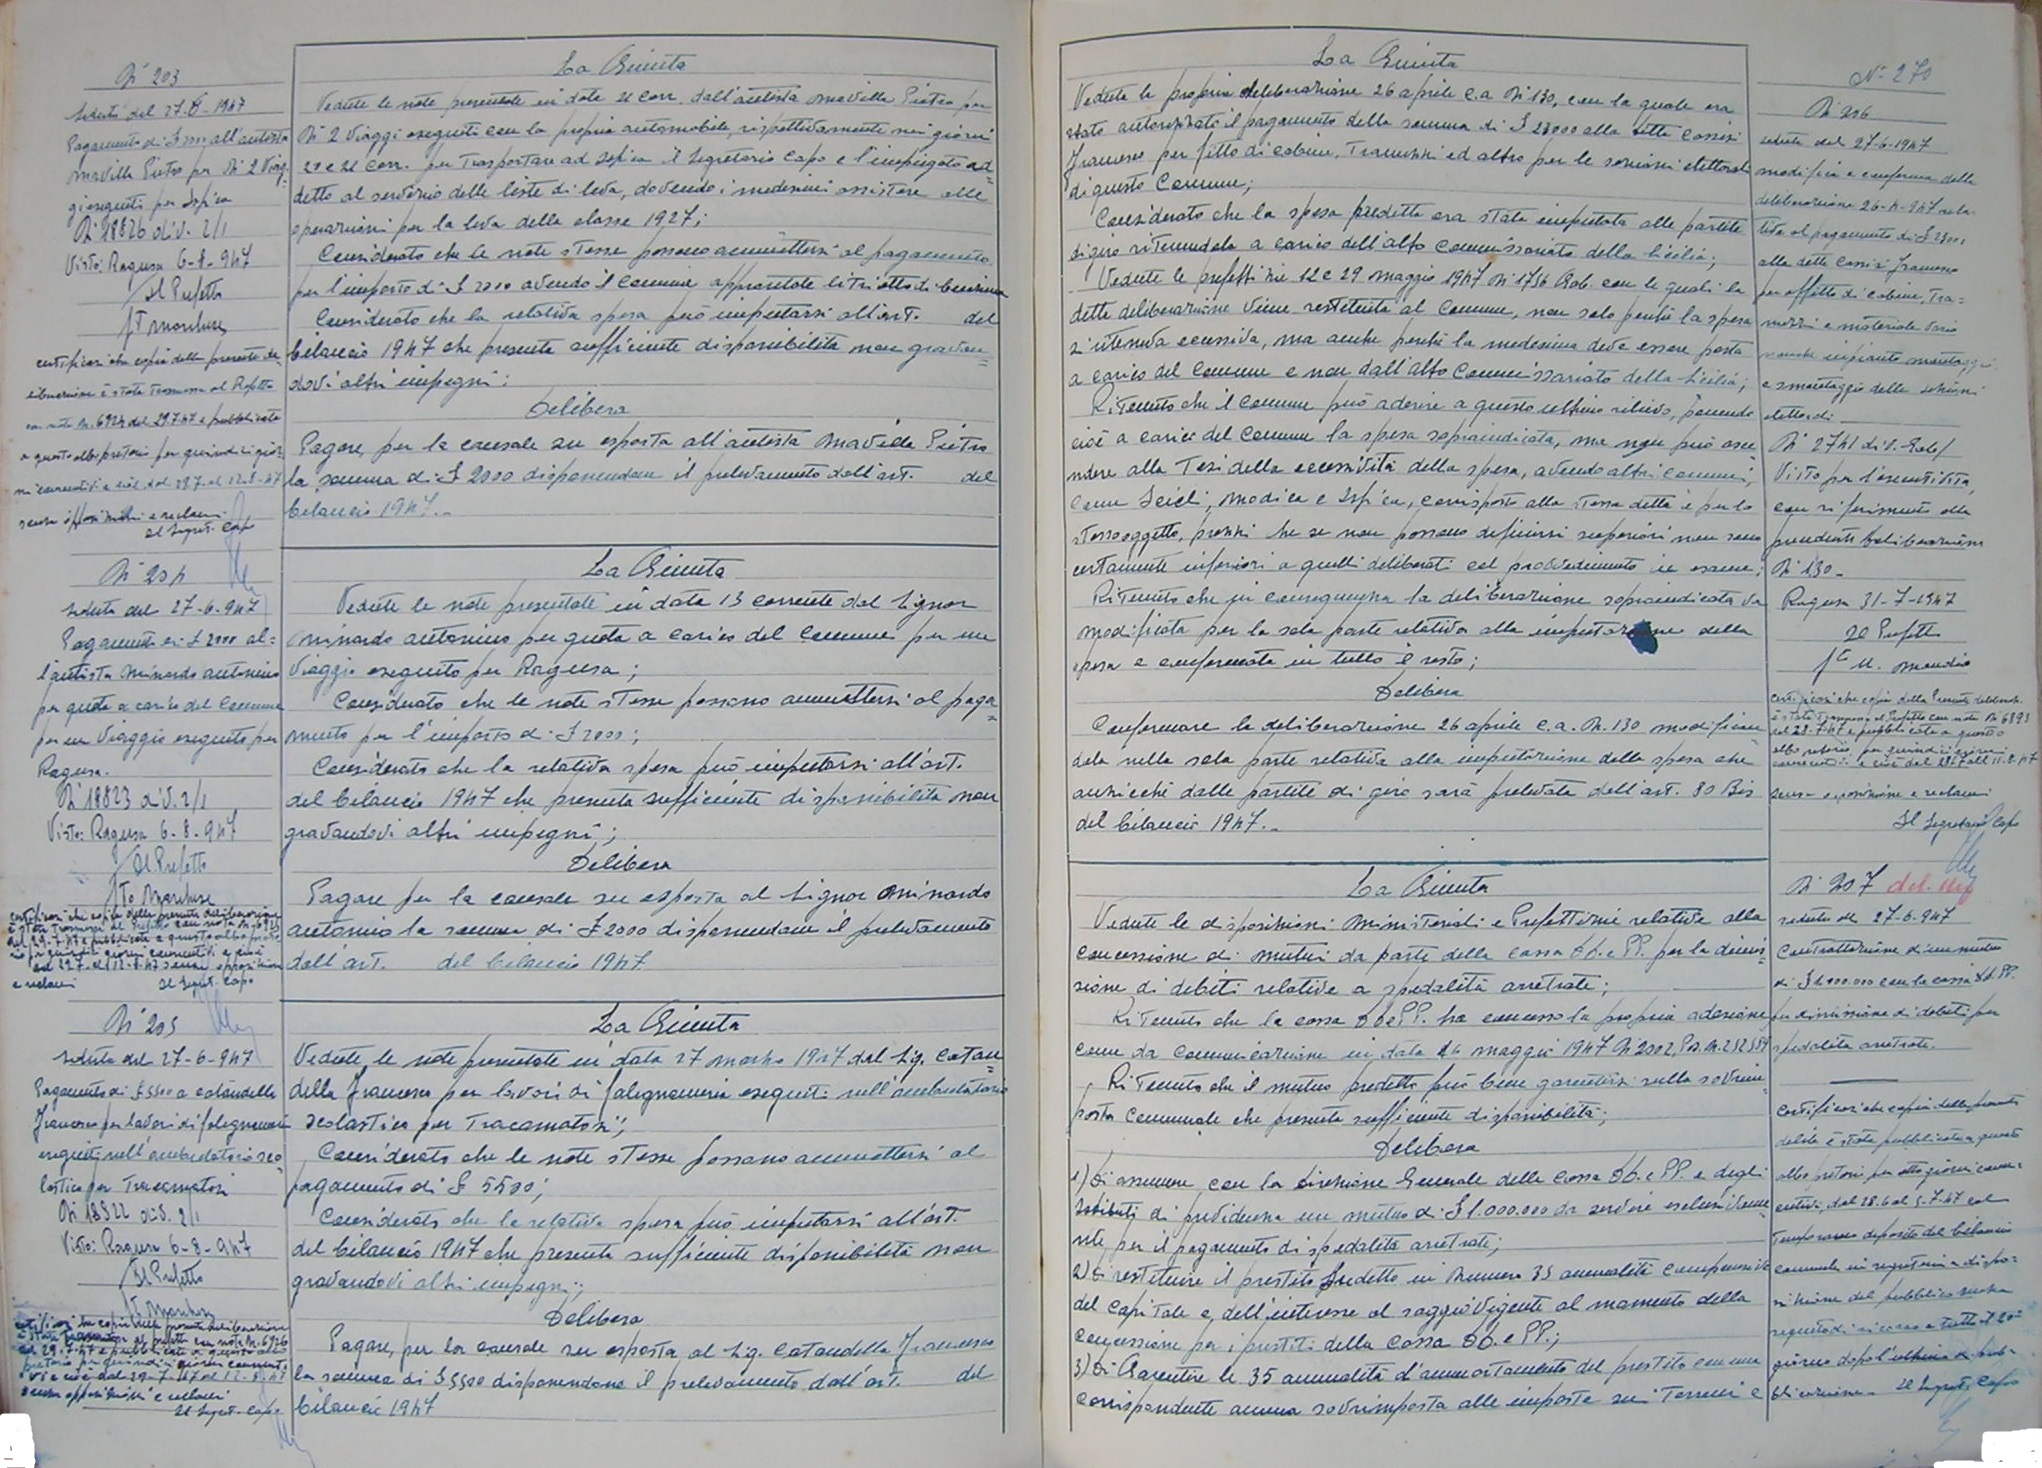 N° 203
Seduta del 27-6-1947
Pagamento di £ 2000 all'autista
Maville Pietro per N° 2 viag-
gi eseguiti per Ispica
N° 18826 div. 2/1
Visto: Ragusa 6-8-947
Il Prefetto
certificasi che copia della presente de-
liberazione è stata trasmessa al Prefetto
con nota N. 6924 del 29.7.47 e pubblicata
a questo albo pretorio per quindici gior-
ni consecutivi e cioè dal 29.7 al 12-8-47
senza opposizioni e reclami
Il Segret. Capo
La Giunta
Vedute le note presentate in data 21 corr. dall'autista Maville Pietro per
N° 2 viaggi eseguiti con la propria automobile, rispettivamente nei giorni
20 e 21 corr. per trasportare ad Ispica il Segretario Capo e l'impiegato ad=
detto al servizio delle liste di leva, dovendo i medesimi assistere alle
operazioni per la leva della classe 1927;
Considerato che le note stesse possono ammettersi al pagamento
per l'importo di £ 2000 avendo il Comune apprestato litri otto di benzina
Considerato che la relativa spesa può imputarsi all'art. del
bilancio 1947 che presenta sufficiente disponibilità non gravan=
dovi altri impegni;
Delibera
Pagare, per la causale su esposta all'autista Maville Pietro
la somma di £ 2000 disponendone il prelevamento dall'art. del
bilancio 1947.-
N° 204
Seduta del 27-6-947
Pagamento di £ 2000 al=
l'autista Minardo Antonino
per quota a carico del Comune
per un viaggio eseguito per
Ragusa.
N° 18823 div. 2/1
Visto: Ragusa 6-8-947
Il Prefetto
certificasi che copia della presente deliberazione
è stata trasmessa al Prefetto con nota N. 6925
del 29-7-47 e pubblicata a questo albo preto-
rio per quindici giorni consecutivi e cioè
dal 29.7 al 12-8-47 senza opposizioni
e reclami Il Segret. Capo
La Giunta
Vedute le note presentate in data 13 corrente dal Signor
Minardo Antonino per quota a carico del Comune per un
viaggio eseguito per Ragusa;
Considerato che le note stesse possono ammettersi al paga=
mento per l'importo di £ 2000;
Considerato che la relativa spesa può imputarsi all'art.
del bilancio 1947 che presenta sufficiente disponibilità non
gravandovi altri impegni;
Delibera
Pagare per la causale su esposta al Signor Minardo
Antonino la somma di £ 2000 disponendone il prelevamento
dall'art. del bilancio 1947.
N° 205
Seduta del 27-6-947
Pagamento di £ 5500 a Cataudella
Francesco per lavori di falegnameria
eseguiti nell'ambulatorio sco=
lastico per Tracomatosi
N° 18822 div. 2/1
Visto: Ragusa 6-8-947
Il Prefetto
certificasi che copia della presente deliberazione
è stata trasmessa al Prefetto con nota N. 6926
del 29.7.47 e pubblicata a questo albo
pretorio per quindici giorni consecuti-
vi e cioè dal 29-7-47 al 12-8-47
senza opposizioni e reclami
Il Segret. Capo
La Giunta
Vedute le note presentate in data 27 marzo 1947 dal Sig. Catau=
della Francesco per lavori di falegnameria eseguiti nell'ambulatorio
scolastico per Tracomatosi;
Considerato che le note stesse possono ammettersi al
pagamento di £ 5500;
Considerato che la relativa spesa può imputarsi all'art.
del bilancio 1947 che presenta sufficiente disponibilità non
gravandovi altri impegni;
Delibera
Pagare, per la causale su esposta al Sig. Cataudella Francesco
la somma di £ 5500 disponendone il prelevamento dall'art. del
bilancio 1947
N° 270
La Giunta
Veduta la propria deliberazione 26 aprile c.a. N° 130, con la quale era
stato autorizzato il pagamento della somma di £ 23000 alla ditta
Francesco per fitto di cabine, tramezzi ed altro per le sezioni elettorali
di questo Comune;
Considerato che la spesa predetta era stata imputata alle partite
di giro ritenendola a carico dell'alto Commissariato della Sicilia;
Vedute le prefettizie 12 e 29 maggio 1947 N° 1756 Gab. con le quali la
detta deliberazione viene restituita al Comune, non solo perché la spesa
si riteneva eccessiva, ma anche perché la medesima deve essere posta
a carico del Comune e non dall'alto Commissariato della Sicilia;
Ritenuto che il Comune può aderire a questo ultimo rilievo, ponendo
cioè a carico del Comune la spesa sopraindicata, ma non può acce
dere alla tesi della eccessività della spesa, avendo altri comuni,
come Scicli, Modica e Ispica, corrisposto alla stessa ditta e per lo
stesso oggetto, prezzi che se non possono definirsi superiori non sono
certamente inferiori a quelli deliberati col provvedimento in esame;
Ritenuto che in conseguenza la deliberazione sopraindicata va
modificata per la sola parte relativa alla imputazione della
spesa e confermata in tutto il resto;
Delibera
Confermare la deliberazione 26 aprile c.a. N. 130 modifican
dola nella sola parte relativa alla imputazione della spesa che
anzicché dalle partite di giro sarà prelevata dall'art. 80 Bis
del bilancio 1947.-
N° 206
seduta del 27-6-1947
modifica e conferma della
deliberazione 26-4-947 rela-
tiva al pagamento di £ 23000
alla ditta Francesco
per affitto di cabine, tra=
mezzi e materiale vario
nonché impianto montaggio
e smontaggio delle sezioni
elettorali
N° 2741 div. Gab/
Visto per l'esecutività,
con riferimento alla
precedente deliberazione
N° 130-
Ragusa 31-7-1947
Il Prefetto
certificasi che copia della presente deliberaz.
è stata trasmessa al Prefetto con nota N° 6893
del 28-7-47 e pubblicata a questo
albo pretorio per quindici giorni
consecutivi e cioè dal 28.7 all'11-8-47
senza opposizione e reclami
Il Segretario Capo
La Giunta
Vedute le disposizioni Ministeriali e Prefettizie relative alla
concessione di mutui da parte della Cassa DD. e PP. per la dimis=
sione di debiti relativi a spedalità arretrate;
Ritenuto che la Cassa DD e PP. ha concesso la propria adesione
come da comunicazione in data 16 maggio 1947 N° 2002,
Ritenuto che il mutuo predetto può bene garentirsi sulla sovrim=
posta Comunale che presenta sufficiente disponibilità;
Delibera
1) Di assumere con la Direzione Generale della Cassa DD. e PP. e degli
Istituti di previdenza un mutuo di £ 1.000.000 da servire esclusivame=
nte per il pagamento di spedalità arretrate;
2) Di restituire il prestito predetto in numero 35 annualità comprensive
del capitale e dell'interesse al saggio vigente al momento della
concessione per i prestiti della Cassa DD. e PP.;
3) Di Garentire le 35 annualità d'ammortamento del prestito con una
corrispondente annua sovrimposta alle imposte sui Terreni e
N° 207
seduta del 27-6-947
Contrattazione di un mutuo
di £ 1.000.000 con la Cassa DD.PP.
per dimissione di debiti per
spedalità arretrate.
Certificasi che copia della presente
delib. è stata pubblicata a questo
albo pretorio per otto giorni conse-
cutivi, dal 28.6 al 5.7.47 col
temporaneo deposito del bilancio
comunale in segreteria a dispo-
sizione del pubblico senza
seguito di ricorso a tutto il 20°
giorno dopo l'ultimo di pub-
blicazione. Il Segret. Capo